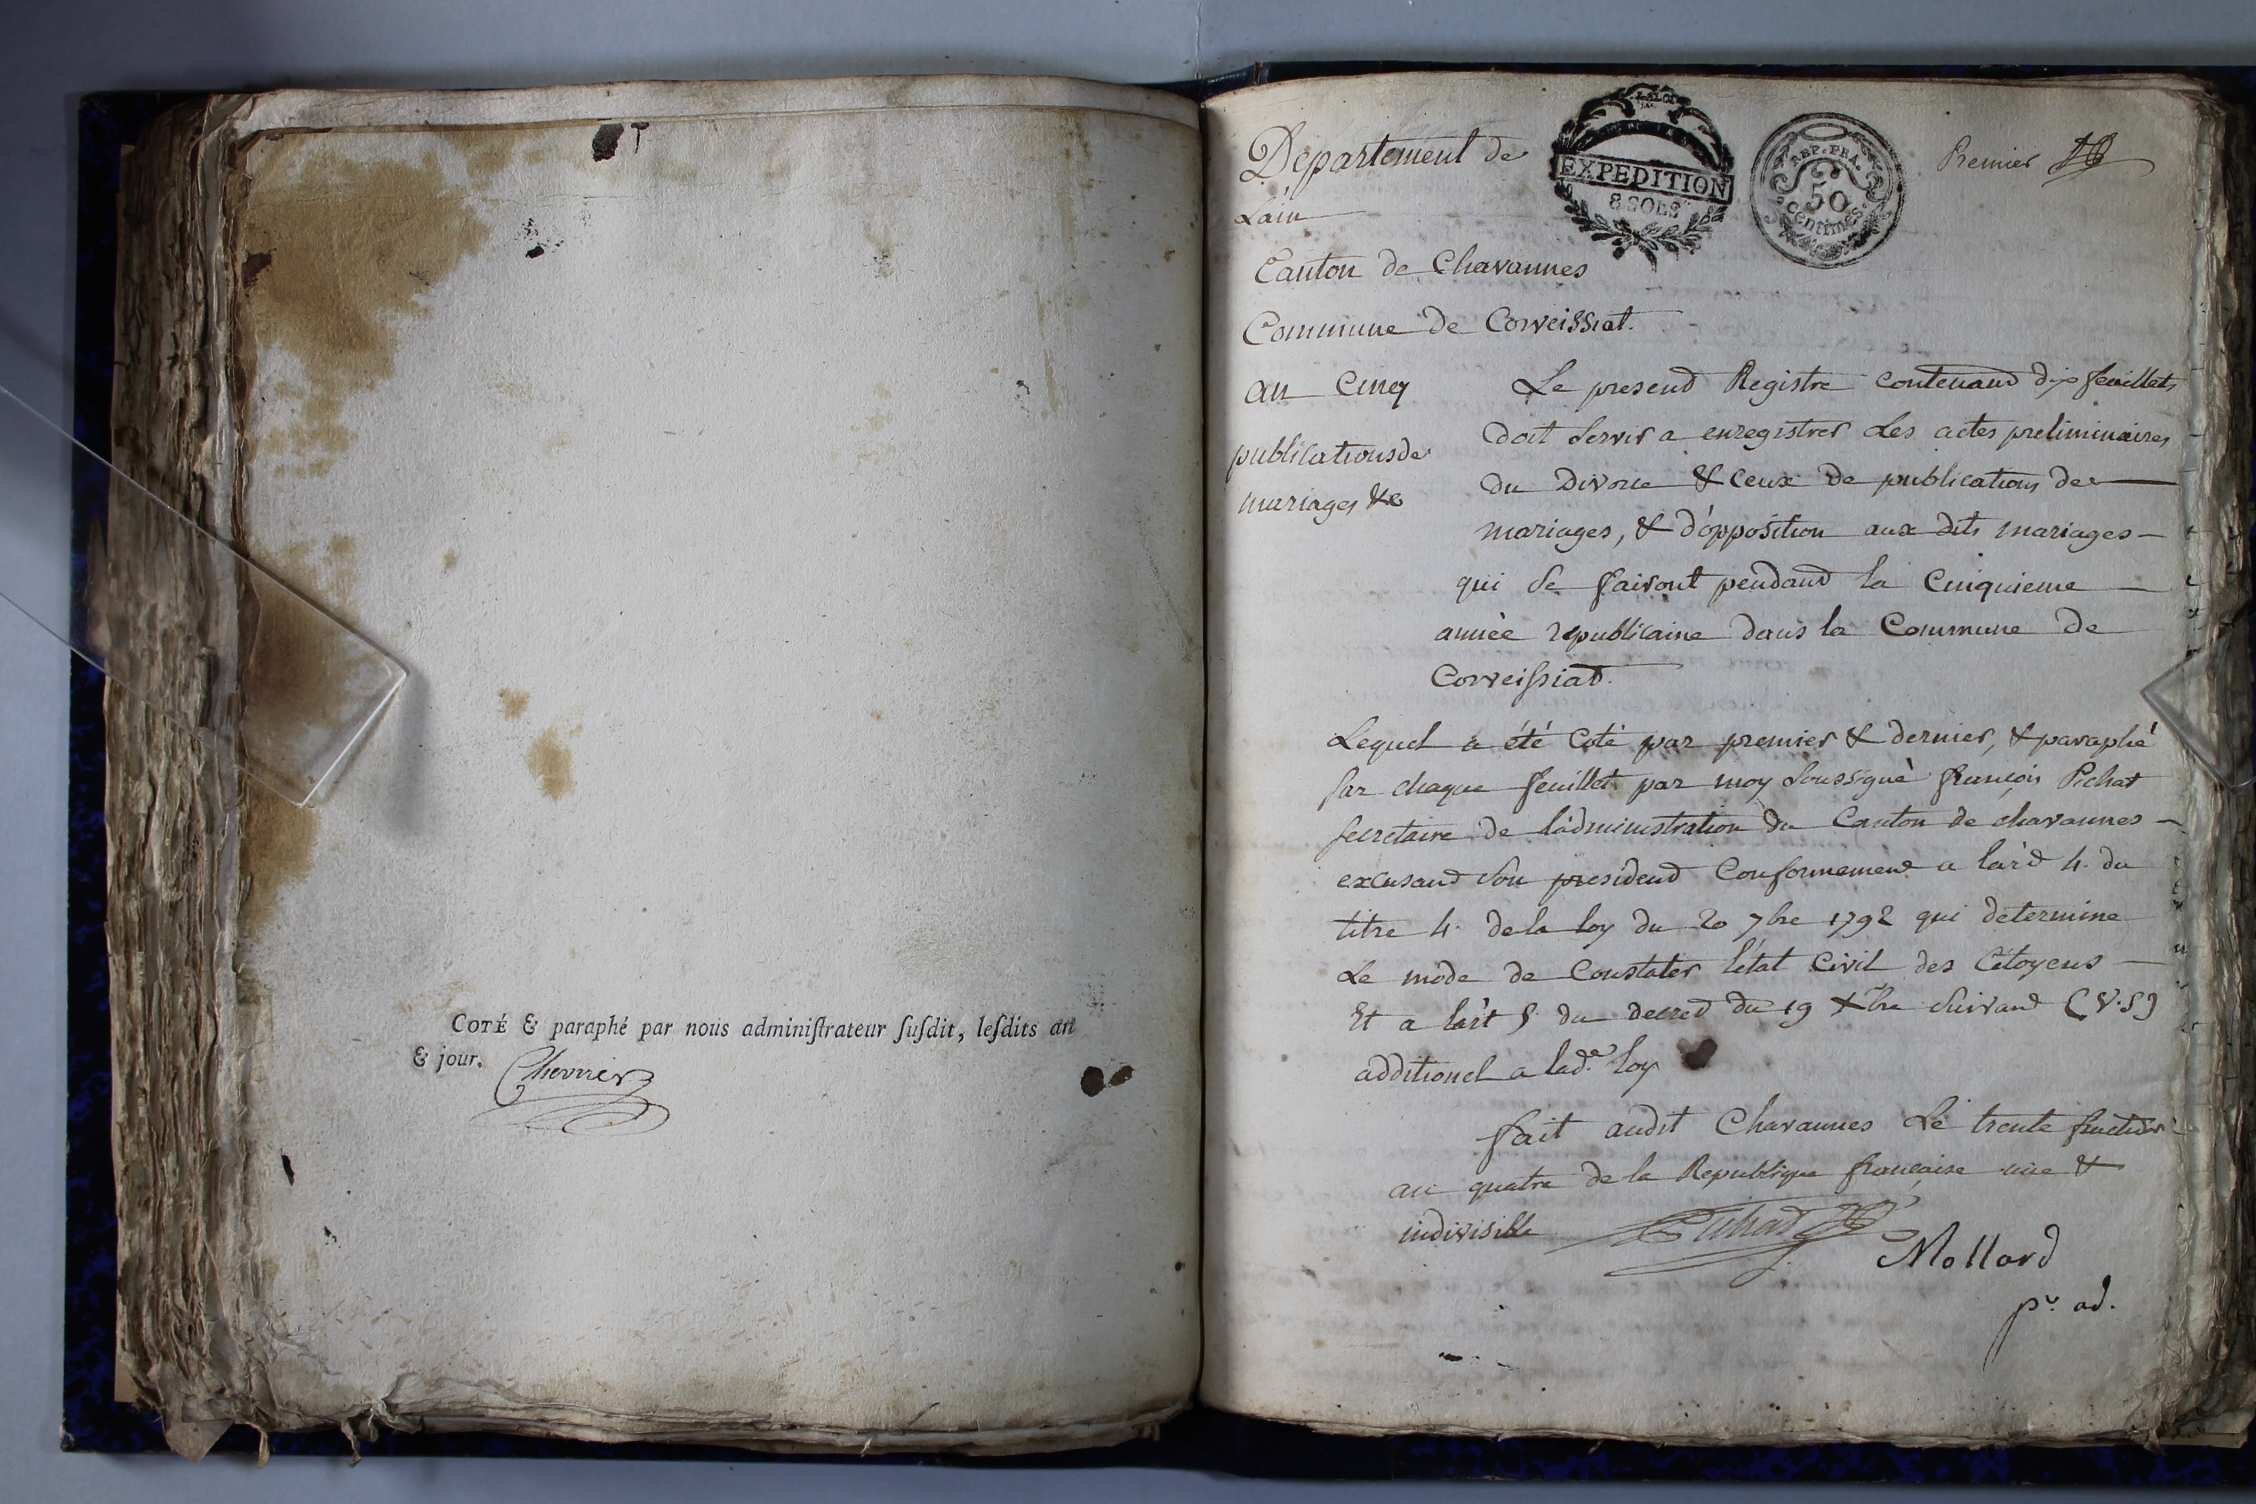 COTÉ & paraphé par nous adminiſtrateur ſuſdit, leſdits an
& jour.
Chevrier
LA LOI
EXPEDITION
8 SOLS
REP. FRA.
50
centimes
Premier
Département de
Lain
Canton de Chavannes
Commune de Corveissiat.
an Cinq
publications de
mariages &c
Le present Registre contenant dix feuillets
doit servir a enregistrer les actes preliminaires
du divorce & ceux de publications de
mariages, & d'opposition aux dits mariages
qui se fairont pendant la Cinquieme
année republicaine dans la Commune de
Corveiſsiat.
Lequel a été Coté par premier & dernier, & paraphé
sur chaque feuillet par moy soussigné françois Pichat
secretaire de l'administration du Canton de chavannes
excusant son president Conformement a l'art 4. du
titre 4. de la loy du 20 7bre 1792 qui determine
Le mode de Constater l'état Civil des Citoyens
Et a l'art 5 du decret du 19 Xbre suivant (V.S)
additionel a lad.e loy
fait audit Chavannes Le trente fructidor
an quatre de la Republique française une &
indivisible Pichat
Mollard
pr. ad.